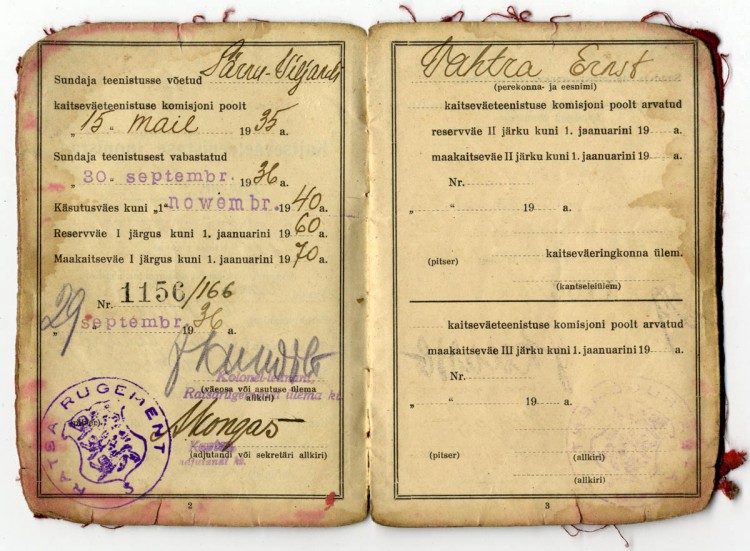 Sundaja teenistusse võetud Pärnu-Viljandi
kaitseväeteenistuse komisjoni poolt
„ 15. " mail 1935 a.
Sundaja teenistusest vabastatud
„ 30. septembr. 1936 a.
Käsutusväes kuni „1" nowembr. 1940 a.
Reservväe I järgus kuni 1. jaanuarini 1960 a.
Maakaitseväe I järgus kuni 1. jaanuarini 1970 a.
Nr. 1156/166
„ 29 " septembr 1936 a.
Kolonel-leitnant,
Ratsarügemendi ülema kt.
(väeosa või asutuse ülema
allkiri)
RATSA RÜGEMENT
(pitser).
adjutandi kt.
(adjutandi või sekretäri allkiri)
2
Vahtra Ernst
(perekonna- ja eesnimi)
kaitseväeteenistuse komisjoni poolt arvatud
reservväe II järku kuni 1. jaanuarini 19 a.
maakaitseväe II järku kuni 1. jaanuarini 19 a.
Nr.
„ “ 19 a.
(pitser) kaitseväeringkonna ülem.
(kantseleiülem)
kaitseväeteenistuse komisjoni poolt arvatud
maakaitseväe III järku kuni 1. jaanuarini 19 a.
Nr.
„ “ 19 a.
(pitser) (allkiri)
(allkiri)
3